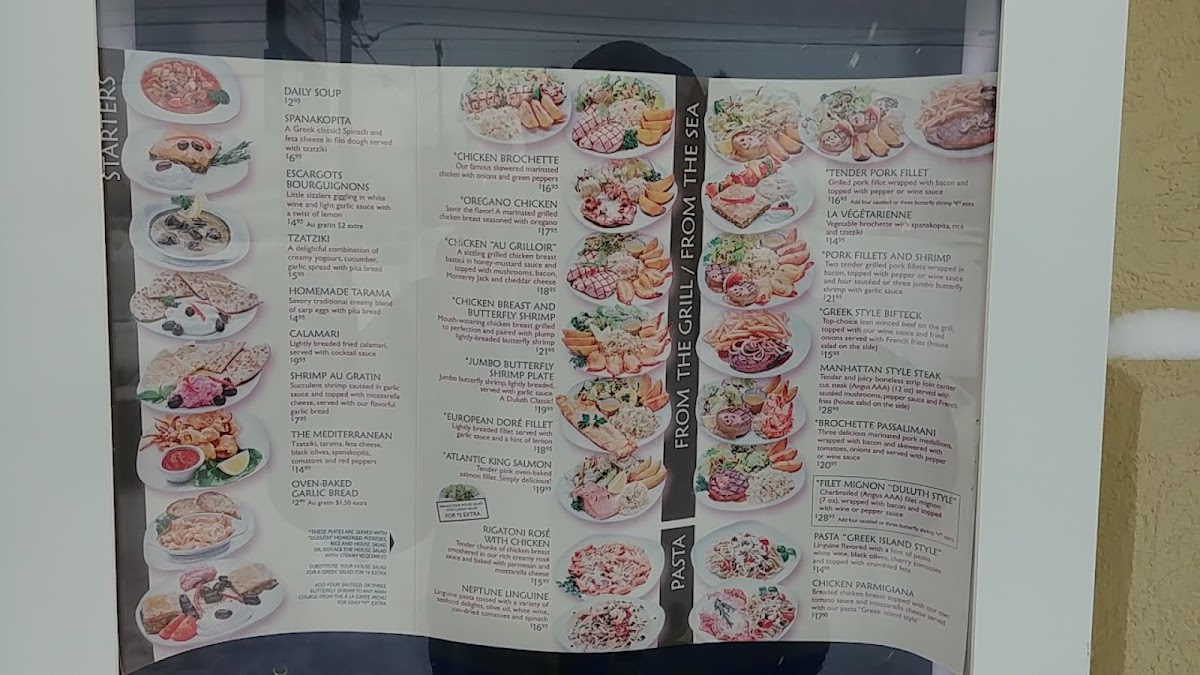 STARTERS
DAILY SOUP
$2⁹⁵
SPANAKOPITA
A Greek classic! Spinach and
feta cheese in filo dough served
with tzatziki
$6⁹⁵
ESCARGOTS
BOURGUIGNONS
Little sizzlers giggling in white
wine and light garlic sauce with
a twist of lemon
$4⁹⁵ Au gratin $2 extra
TZATZIKI
A delightful combination of
creamy yogourt, cucumber,
garlic spread with pita bread
$5⁹⁵
HOMEMADE TARAMA
Savory traditional creamy blend
of carp eggs with pita bread
$4⁹⁵
CALAMARI
Lightly breaded fried calamari,
served with cocktail sauce
$9⁹⁵
SHRIMP AU GRATIN
Succulent shrimp sautéed in garlic
sauce and topped with mozzarella
cheese, served with our flavorful
garlic bread
$7⁹⁵
THE MEDITERRANEAN
Tzatziki, tarama, feta cheese,
black olives, spanakopita,
tomatoes and red peppers
$14⁹⁵
OVEN-BAKED
GARLIC BREAD
$2⁹⁵ Au gratin $1.50 extra
*THESE PLATES ARE SERVED WITH
"DULUTH" HOMEFRIED POTATOES,
RICE AND HOUSE SALAD,
OR, REPLACE THE HOUSE SALAD
WITH STEAMY VEGETABLES
SUBSTITUTE YOUR HOUSE SALAD
FOR A GREEK SALAD FOR $4 EXTRA
ADD FOUR SAUTEED OR THREE
BUTTERFLY SHRIMP TO ANY MAIN
COURSE FROM THE A LA CARTE MENU
FOR ONLY $4⁹⁵ EXTRA
*CHICKEN BROCHETTE
Our famous skewered marinated
chicken with onions and green peppers
$16⁹⁵
*OREGANO CHICKEN
Savor the flavor! A marinated grilled
chicken breast seasoned with oregano
$17⁹⁵
*CHICKEN "AU GRILLOIR"
A sizzling grilled chicken breast
basted in honey-mustard sauce and
topped with mushrooms, bacon,
Monterey Jack and cheddar cheese
$18⁹⁵
*CHICKEN BREAST AND
BUTTERFLY SHRIMP
Mouth-watering chicken breast grilled
to perfection and paired with plump
lightly-breaded butterfly shrimp
$21⁹⁵
*JUMBO BUTTERFLY
SHRIMP PLATE
Jumbo butterfly shrimp, lightly breaded,
served with garlic sauce.
A Duluth Classic!
$19⁹⁵
*EUROPEAN DORÉ FILLET
Lightly breaded fillet served with
garlic sauce and a hint of lemon
$18⁹⁵
*ATLANTIC KING SALMON
Tender pink oven-baked
salmon fillet. Simply delicious!
$19⁹⁵
FOR $4 EXTRA
RIGATONI ROSÉ
WITH CHICKEN
Tender chunks of chicken breast
smothered in our rich creamy rosé
sauce and baked with parmesan and
mozzarella cheese
$15⁹⁵
NEPTUNE LINGUINE
Linguine pasta tossed with a variety of
seafood delights, olive oil, white wine,
sun-dried tomatoes and spinach
$16⁹⁵
FROM THE GRILL / FROM THE SEA
PASTA
*TENDER PORK FILLET
Grilled pork fillet wrapped with bacon and
topped with pepper or wine sauce
$16⁹⁵ Add four sautéed or three butterfly shrimp $4⁹⁵ extra
LA VÉGÉTARIENNE
Vegetable brochette with spanakopita, rice
and tzatziki
$14⁹⁵
*PORK FILLETS AND SHRIMP
Two tender grilled pork fillets wrapped in
bacon, topped with pepper or wine sauce
and four sautéed or three jumbo butterfly
shrimp with garlic sauce
$21⁹⁵
*GREEK STYLE BIFTECK
Top-choice lean minced beef on the grill,
topped with our wine sauce and fried
onions served with French fries (house
salad on the side)
$15⁹⁵
MANHATTAN STYLE STEAK
Tender and juicy boneless strip loin center
cut steak (Angus AAA) (12 oz) served with
sautéed mushrooms, pepper sauce and French
fries (house salad on the side)
$28⁹⁵
*BROCHETTE PASSALIMANI
Three delicious marinated pork medallions,
wrapped with bacon and skewered with
tomatoes, onions and served with pepper
or wine sauce
$20⁹⁵
*FILET MIGNON "DULUTH STYLE"
Charbroiled (Angus AAA) filet mignon
(7 oz), wrapped with bacon and topped
with wine or pepper sauce
$28⁹⁵ Add four sautéed or three butterfly shrimp $4⁹⁵ extra
PASTA "GREEK ISLAND STYLE"
Linguine flavored with a hint of pesto,
white wine, black olives, cherry tomatoes
and topped with crumbled feta
$14⁹⁵
CHICKEN PARMIGIANA
Breaded chicken breast topped with our own
tomato sauce and mozzarella cheese served
with our pasta "Greek island style"
$17⁹⁵